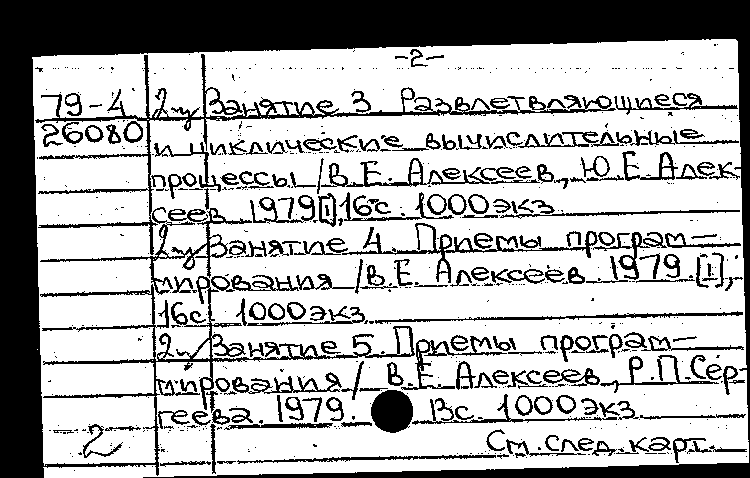 -2-
79-4 2цу Занятие 3. Развлетвляющиеся
26080 и циклические вычислительные
процессы /В.Е. Алексеев, Ю.Е Алек-
сеев. 1979[1],16с. 1000экз.
2цу Занятие 4. Приемы програм-
мирования /В.Е. Алексеев. 1979.[1],
16с. 1000экз.
2цу Занятие 5. Приемы програм-
мирования/ В.Е. Алексеев, Р.П.Сер-
геева. 1979. 13с. 1000экз.
2 См.след.карт.